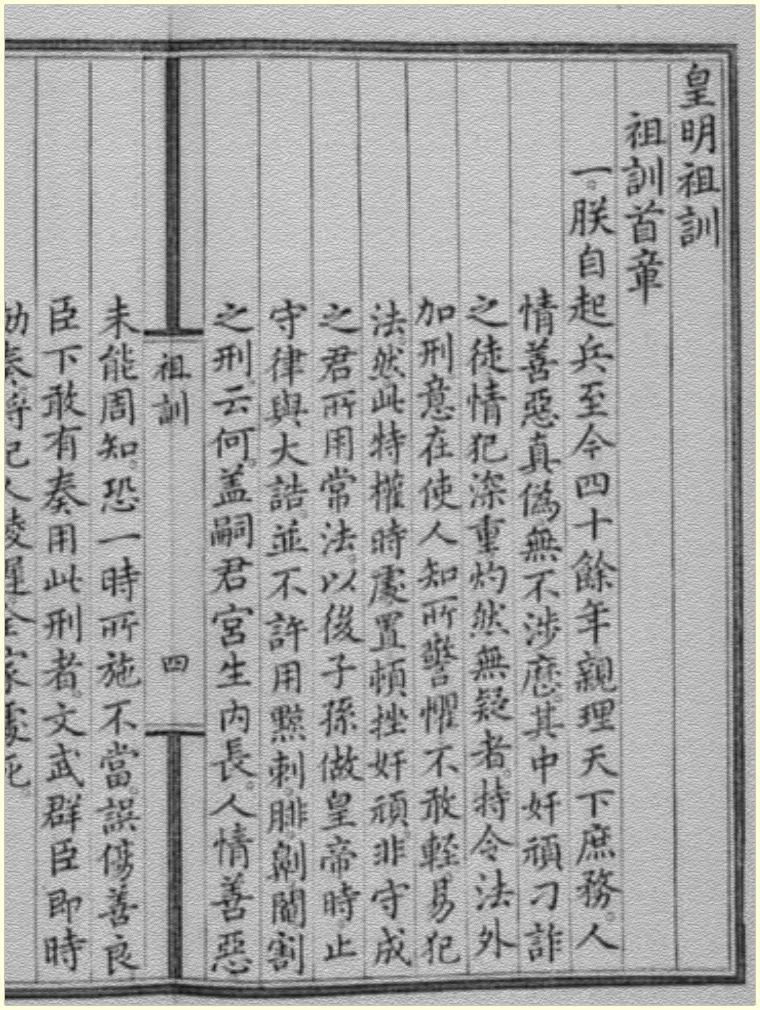 皇明祖訓
祖訓首章
一。朕自起兵至今四十餘年。親理天下庶務。人
情善惡真偽。無不涉歷。其中奸頑刁詐
之徒。情犯深重。灼然無疑者。特令法外
加刑。意在使人知所警懼。不敢輕易犯
法。然此特權時處置。頓挫奸頑。非守成
之君所用常法。以後子孫做皇帝時。止
守律與大誥。並不許用黥刺。腓。劓。閹割
之刑。云何。蓋嗣君宮生內長。人情善惡
祖訓
四
未能周知。恐一時所施不當。誤傷善良
臣下敢有奏用此刑者。文武群臣即時
劾奏。將犯人凌遲。全家處死。